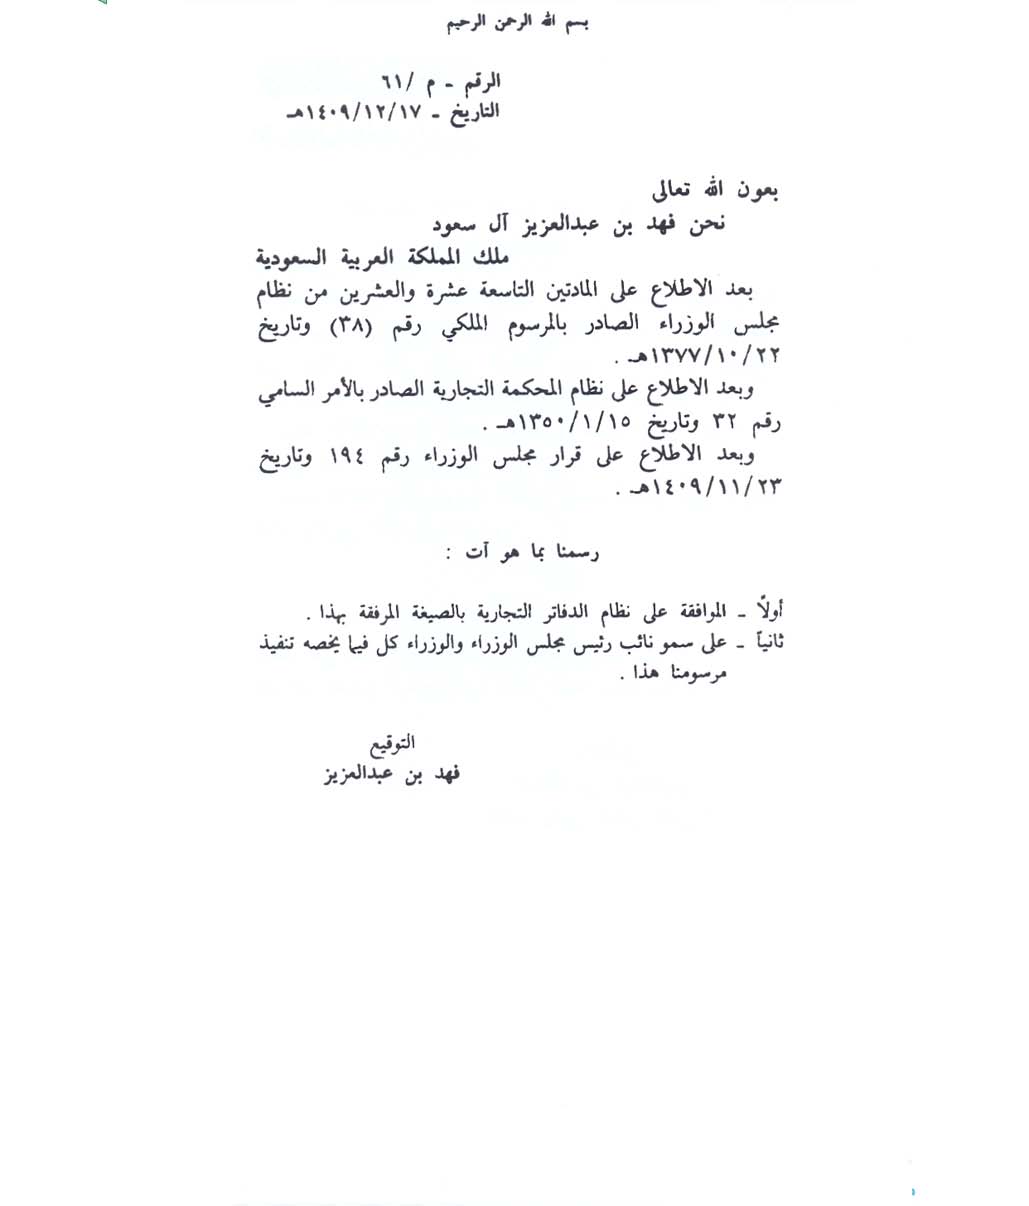 بسم الله الرحمن الرحيم
الرقم - م /٦١
التاريخ - ١٤٠٩/١٢/١٧هـ
بعون الله تعالى
نحن فهد بن عبدالعزيز آل سعود
ملك المملكة العربية السعودية
بعد الاطلاع على المادتين التاسعة عشرة والعشرين من نظام
مجلس الوزراء الصادر بالمرسوم الملكي رقم (٣٨) وتاريخ
١٣٧٧/١٠/٢٢هـ .
وبعد الاطلاع على نظام المحكمة التجارية الصادر بالأمر السامي
رقم ٣٢ وتاريخ ١٣٥٠/١/١٥هـ .
وبعد الاطلاع على قرار مجلس الوزراء رقم ١٩٤ وتاريخ
١٤٠٩/١١/٢٣هـ .
رسمنا بما هو آت :
أولاً - الموافقة على نظام الدفاتر التجارية بالصيغة المرفقة بهذا .
ثانياً - على سمو نائب رئيس مجلس الوزراء والوزراء كل فيما يخصه تنفيذ
مرسومنا هذا .
التوقيع
فهد بن عبدالعزيز